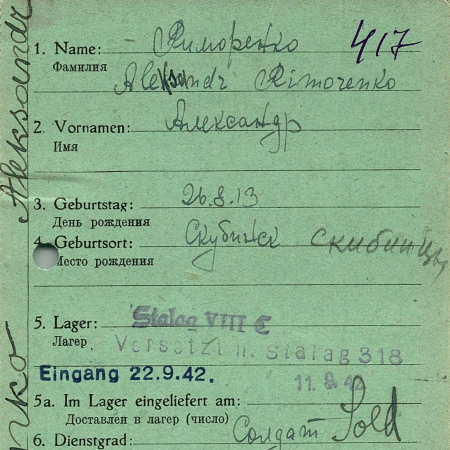 Aleksandr
1. Name: Риморенко 417
Фамилия
Aleksandr Rimorenko
2. Vornamen: Александр
Имя
3. Geburtstag: 26.8.13
День рождения
4. Geburtsort: Скубинск Скибинцы
Место рождения
5. Lager: Stalag VIII C
Лагерь
Versetzt n. Stalag 318
Eingang 22.9.42. 11.9.42
5a. Im Lager eingeliefert am:
Доставлен в лагерь (число)
6. Dienstgrad: Солдат Sold